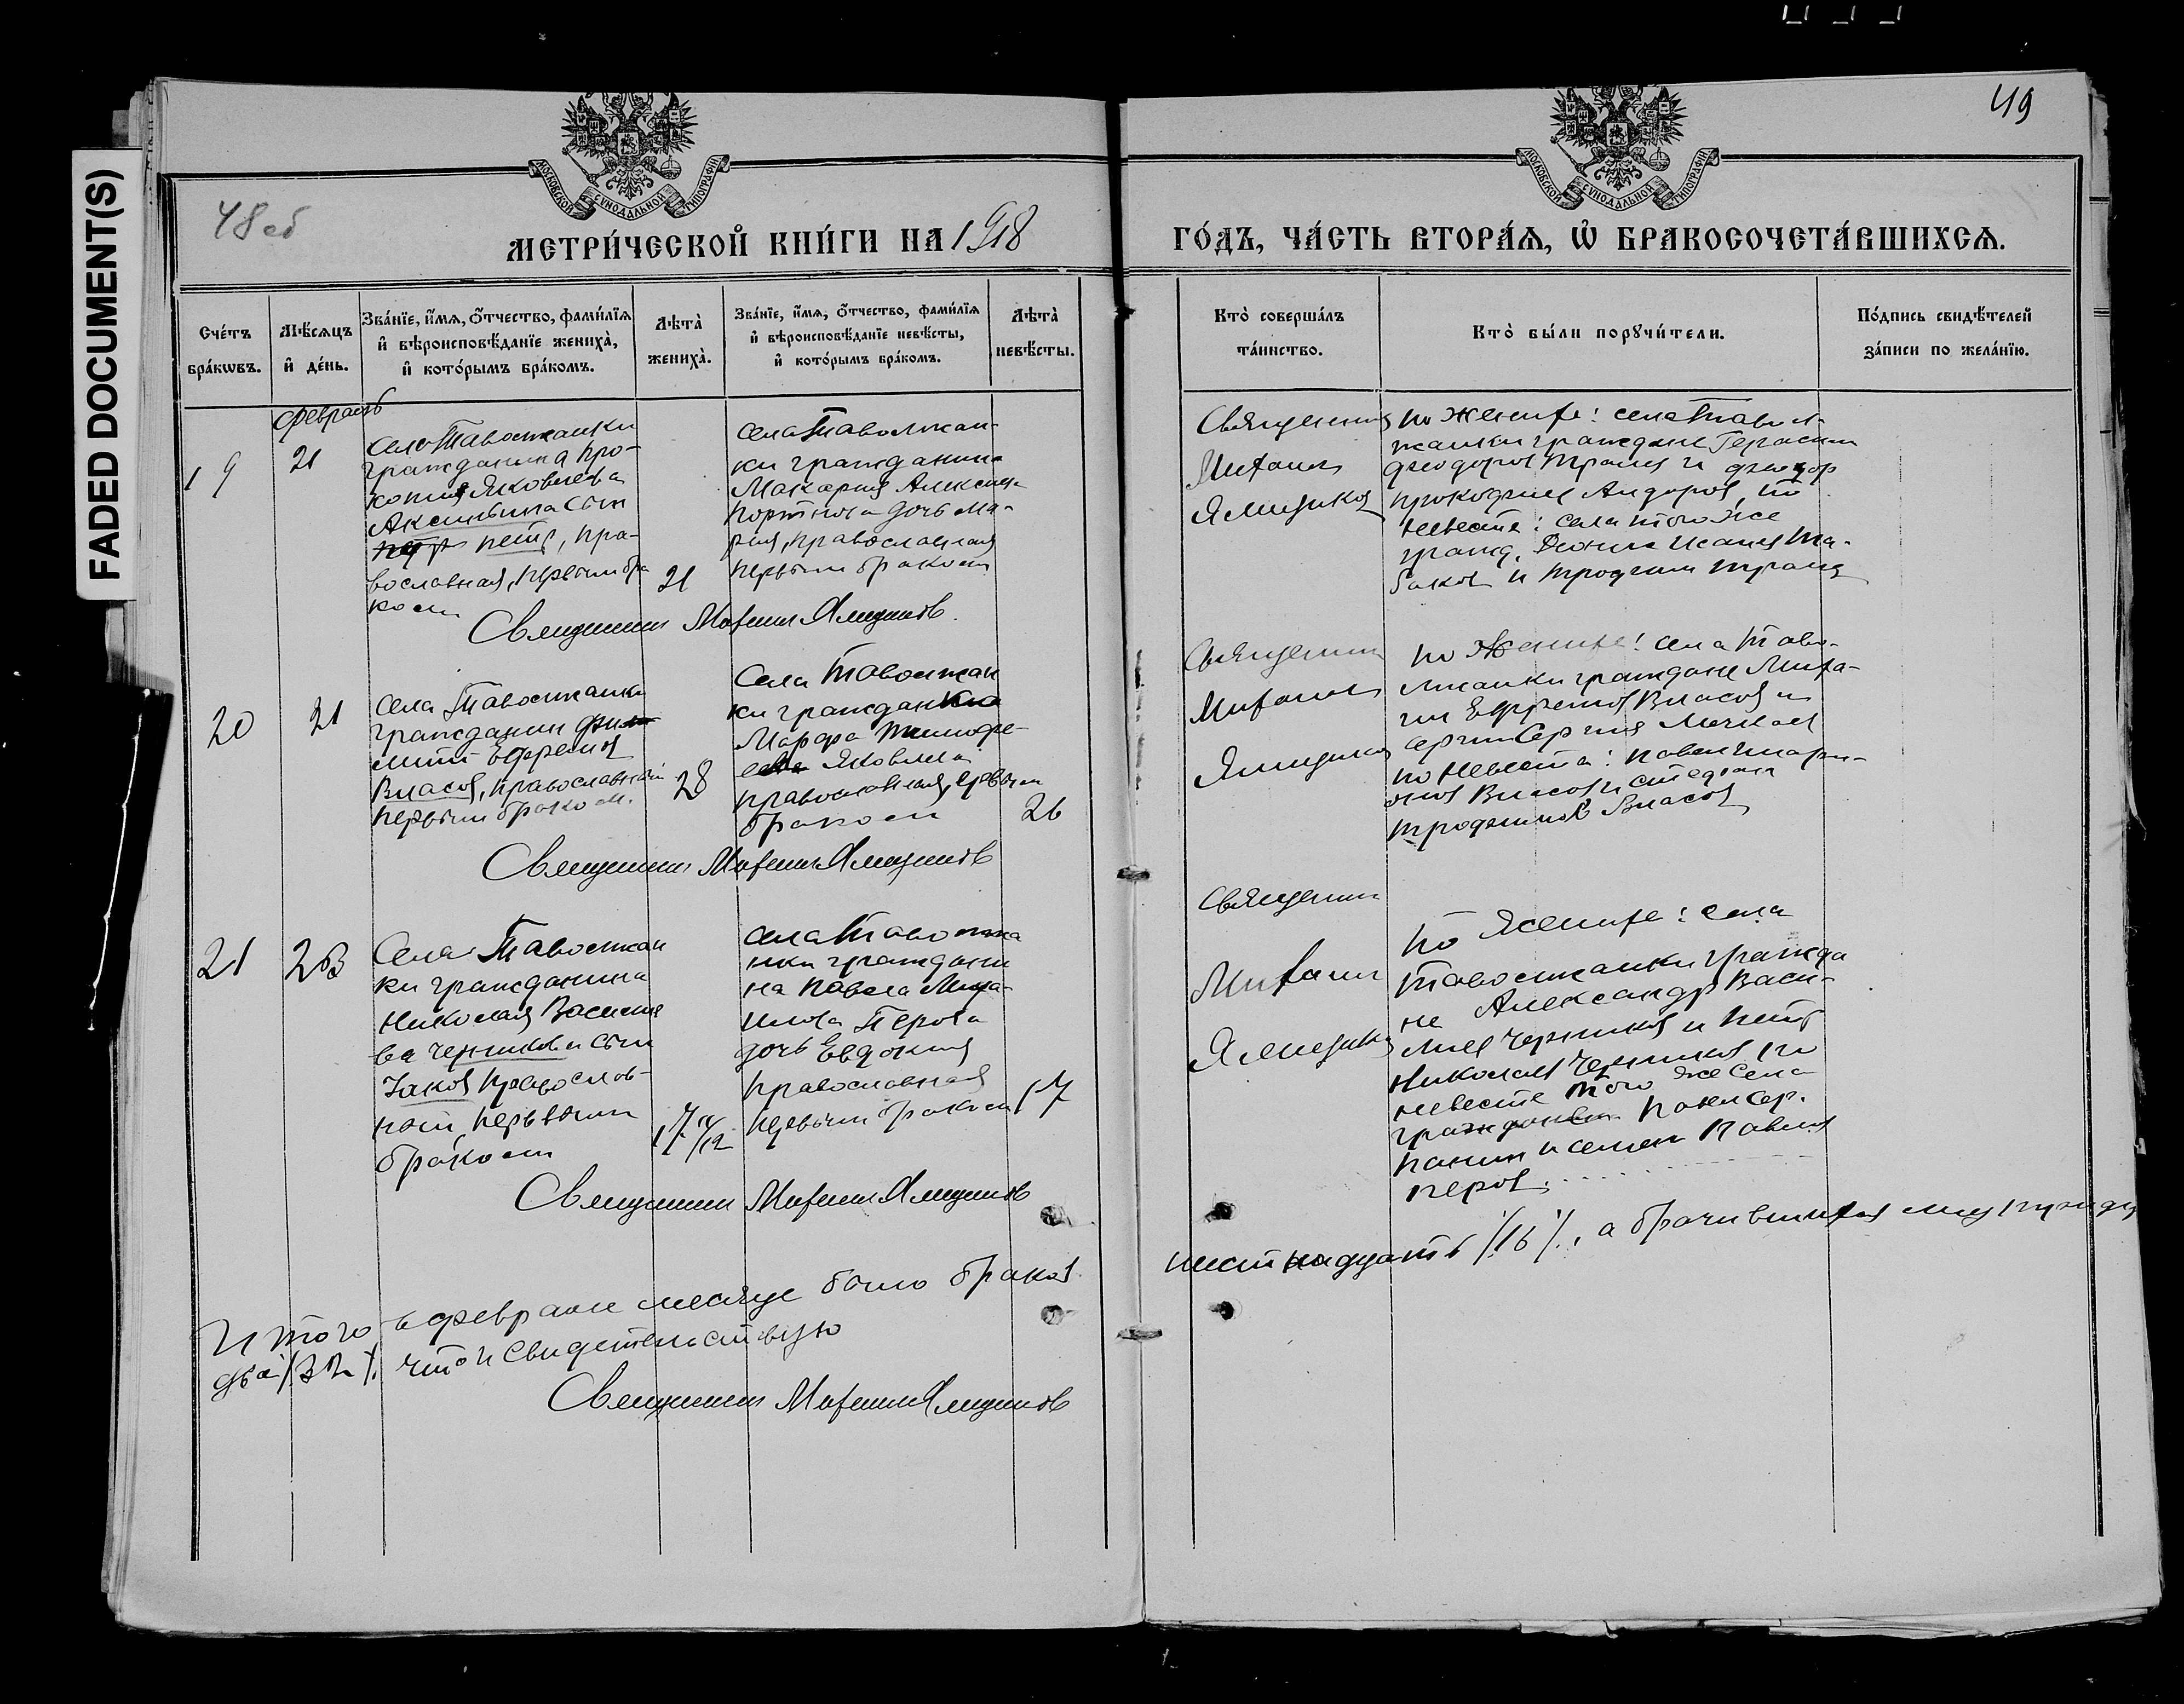 FADED DOCUMENT(S)
48 об
49
МОСКОВСКОЙ СѴНОДАЛЬНОЙ ТИПОГРАФІИ
МОСКОВСКОЙ СѴНОДАЛЬНОЙ ТИПОГРАФІИ
МЕТРИ́ЧЕСКОЙ КНИ́ГИ НА 1918
ГО́ДЪ, ЧА́СТЬ ВТОРА́Я, Ѡ БРАКОСОЧЕТА́ВШИХСЯ.
Сче́тъ
бра́кѡвъ.
Мѣ́сяцъ
и де́нь.
Зва́нїе, и́мя, о́тчество, фами́лїя
и вѣроисповѣ́данїе жениха̀,
и кото́рымъ бра́комъ.
Лѣта̀
жениха̀.
Зва́нїе, и́мя, о́тчество, фами́лїя
и вѣроисповѣ́данїе невѣ́сты,
и кото́рымъ бра́комъ.
Лѣта̀
невѣ́сты.
Кто̀ соверша́лъ
та́инство.
Кто̀ бы́ли порꙋчи́тели.
По́дпись свидѣ́телей
за́писи по жела́нїю.
февраль
19
21
Села Таволжанки
гражданина Про-
копия Яковлева
Аксиньина сын
Петр, пра-
вославная, первым бра
ком
21
села Таволжан-
ки гражданина
Макария Алексеева
Портнова дочь Ма-
рия, православная
первым браком
Священник
Михаил
Ямщиков
по женихе: села Тавол-
жанки граждане Герасим
феодоров и феодор
невесте: села того же
гражд.
Священник Михаил Ямщиков.
20
21
Села Таволжанки
гражданин
Ефремов
Власов, православный
первым браком.
28
Села Таволжан
ки гражданка
Марфа Тимофе-
ева Яковлева
православная, первым
браком
26
Священник
Михаил
Ямщиков
по Женихе: села Таво-
лжанки граждане Миха-
ил Ефремов Власов и
по невесте: Павел
Власов и стефан
Трофимов Власов
Священник Михаил Ямщиков
21
28
Села Таволжан
ки гражданина
Николая Василье
ва Черникова сын
Иаков православ-
ной, первым
браком
17
села Таволжа
нки граждани
на Павла Миха-
илова Перова
дочь Евдокия
православная
первым браком
17
Священник
Михаил
Ямщиков
По Женихе: села
Таволжанки гражда
не Александр Васи-
льев Черников и Петр
Николаев Черников, по
невесте того же села
Панин и семен Павлов
перов.
Священник Михаил Ямщиков
Итого в феврале месяце было браков
шестнадцать /16/, а брачившихся лиц тридц
два /32/. что и свидетельствую
Священник Михаил Ямщиков